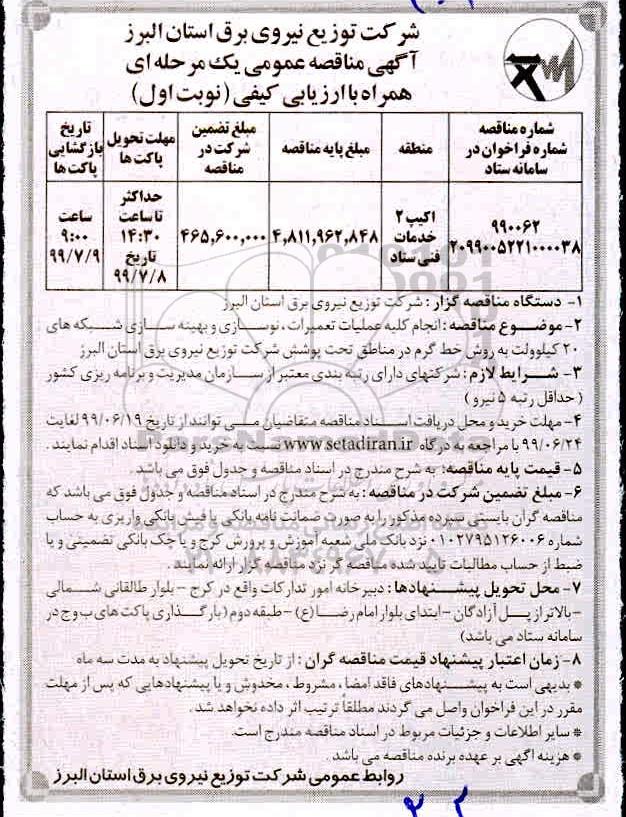 شرکت توزیع نیروی برق استان البرز
آگهی مناقصه عمومی یک مرحله ای
همراه با ارزیابی کیفی (نوبت اول)
شماره مناقصه شماره فراخوان در سامانه ستاد | منطقه | مبلغ پایه مناقصه | مبلغ تضمین شرکت در مناقصه | مهلت تحویل پاکت ها | تاریخ بازگشایی پاکت ها
۹۹۰۰۶۲ ۲۰۹۹۰۰۵۲۲۱۰۰۰۰۳۸ | اکیپ ۲ خدمات فنی ستاد | ۴,۸۱۱,۹۶۲,۸۴۸ | ۴۶۵,۶۰۰,۰۰۰ | حداکثر تا ساعت ۱۴:۳۰ تاریخ ۹۹/۷/۸ | ساعت ۹:۰۰ ۹۹/۷/۹
۱- دستگاه مناقصه گزار : شرکت توزیع نیروی برق استان البرز
۲- موضوع مناقصه : انجام کلیه عملیات تعمیرات ، نوسازی و بهینه سازی شبکه های
۲۰ کیلوولت به روش خط گرم در مناطق تحت پوشش شرکت توزیع نیروی برق استان البرز
۳- شرایط لازم : شرکتهای دارای رتبه بندی معتبر از سازمان مدیریت و برنامه ریزی کشور
( حداقل رتبه ۵ نیرو )
۴- مهلت خرید و محل دریافت اسناد مناقصه متقاضیان می توانند از تاریخ ۹۹/۰۶/۱۹ لغایت
۹۹/۰۶/۲۴ با مراجعه به درگاه www.setadiran.ir نسبت به خرید و دانلود اسناد اقدام نمایند .
۵- قیمت پایه مناقصه: به شرح مندرج در اسناد مناقصه و جدول فوق می باشد .
۶- مبلغ تضمین شرکت در مناقصه : به شرح مندرج در اسناد مناقصه و جدول فوق می باشد که
مناقصه گران بایستی سپرده مذکور را به صورت ضمانت نامه بانکی یا فیش بانکی واریزی به حساب
شماره ۰۱۰۲۷۹۵۱۲۶۰۰۶ نزد بانک ملی شعبه آموزش و پرورش کرج و یا چک بانکی تضمینی و یا
ضبط از حساب مطالبات تایید شده مناقصه گر نزد مناقصه گزار ارائه نمایند .
۷- محل تحویل پیشنهادها : دبیرخانه امور تدارکات واقع در کرج - بلوار طالقانی شمالی
- بالاتر از پل آزادگان - ابتدای بلوار امام رضا (ع) - طبقه دوم (بارگذاری پاکت های ب و ج در
سامانه ستاد می باشد)
۸- زمان اعتبار پیشنهاد قیمت مناقصه گران : از تاریخ تحویل پیشنهاد به مدت سه ماه
* بدیهی است به پیشنهادهای فاقد امضا ، مشروط ، مخدوش و یا پیشنهادهایی که پس از مهلت
مقرر در این فراخوان واصل می گردند مطلقاً ترتیب اثر داده نخواهد شد .
* سایر اطلاعات و جزئیات مربوط در اسناد مناقصه مندرج است.
* هزینه آگهی بر عهده برنده مناقصه می باشد .
روابط عمومی شرکت توزیع نیروی برق استان البرز